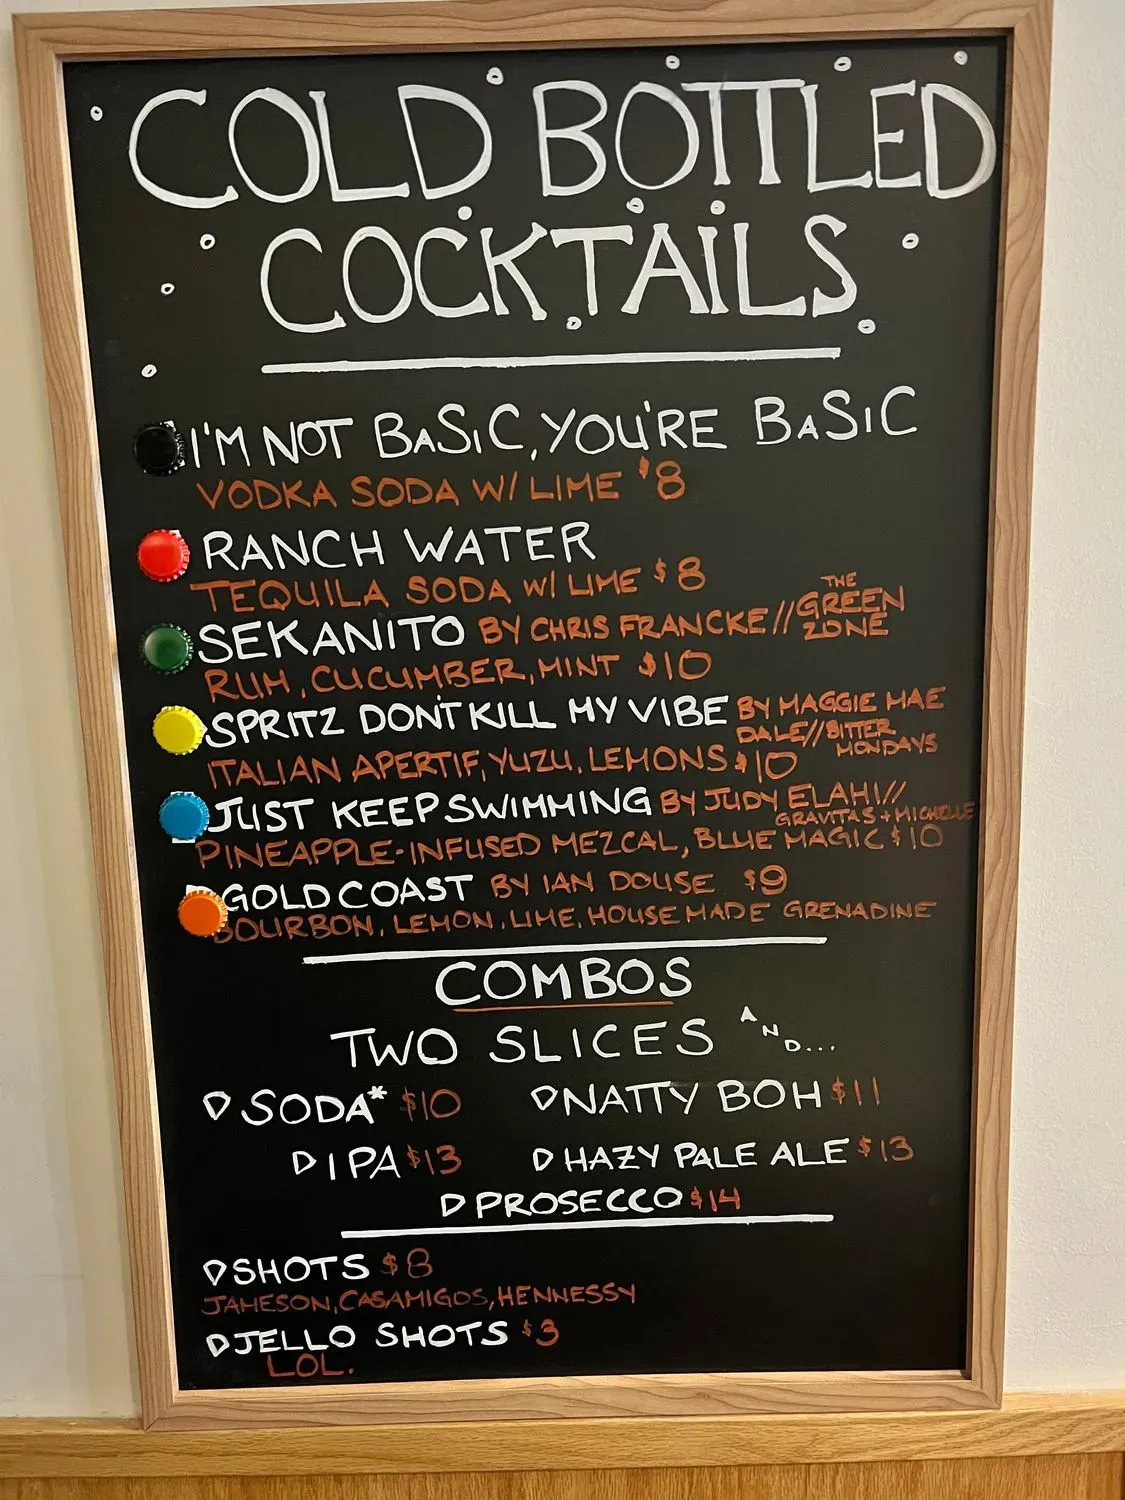 COLD BOTTLED
COCKTAILS
I'M NOT BASIC, YOU'RE BASIC
VODKA SODA W/ LIME $8
RANCH WATER
TEQUILA SODA W/ LIME $8
SEKANITO BY CHRIS FRANCKE // THE GREEN ZONE
RUM, CUCUMBER, MINT $10
SPRITZ DON'T KILL MY VIBE BY MAGGIE MAE DALE // BITTER MONDAYS
ITALIAN APERTIF, YUZU, LEMONS $10
JUST KEEP SWIMMING BY JUDY ELAHI // GRAVITAS + MICHELLE
PINEAPPLE-INFUSED MEZCAL, BLUE MAGIC $10
GOLD COAST BY IAN DOUSE $9
BOURBON, LEMON, LIME, HOUSEMADE GRENADINE
COMBOS
TWO SLICES AND...
SODA* $10 NATTY BOH $11
IPA $13 HAZY PALE ALE $13
PROSECCO $14
SHOTS $8
JAMESON, CASAMIGOS, HENNESSY
JELLO SHOTS $3
LOL.